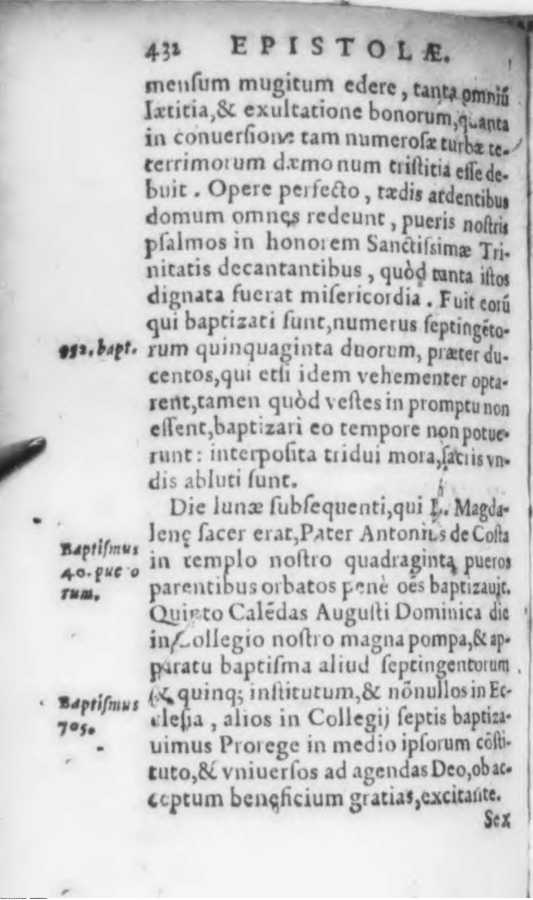 432 EPISTOLÆ.
mensum mugitum edere, tanta omniũ
lætitia, & exultatione bonorum, quanta
in conuersione tam numerosæ turbæ te-
terrimorum dæmonum tristitia esse de-
buit. Opere perfecto, tædis ardentibus
domum omnęs redeunt, pueris nostris
psalmos in honorem Sanctissimæ Tri-
nitatis decantantibus, quòd tanta istos
dignata fuerat misericordia. Fuit eorũ
qui baptizati sunt, numerus septingẽto-
952. bapt. rum quinquaginta duorum, præter du-
centos, qui etsi idem vehementer opta-
rent, tamen quòd vestes in promptu non
essent, baptizari eo tempore non potue-
runt: interposita tridui mora, sacris vn-
dis abluti sunt.
Die lunæ subsequenti, qui L. Magda-
Baptismus lenę sacer erat, Pater Antonius de Costa
40. pue o in templo nostro quadraginta pueros
rum. parentibus orbatos penè oẽs baptizauit.
Quinto Calẽdas Augusti Dominica die
in Collegio nostro magna pompa, & ap-
paratu baptisma aliud septingentorum
Baptismus & quinq; institutum, & nõnullos in Ec-
705. clesia, alios in Collegij septis baptiza-
uimus Prorege in medio ipsorum cõsti-
tuto, & vniuersos ad agendas Deo, ob ac-
ceptum benęficium gratias, excitante.
Sex